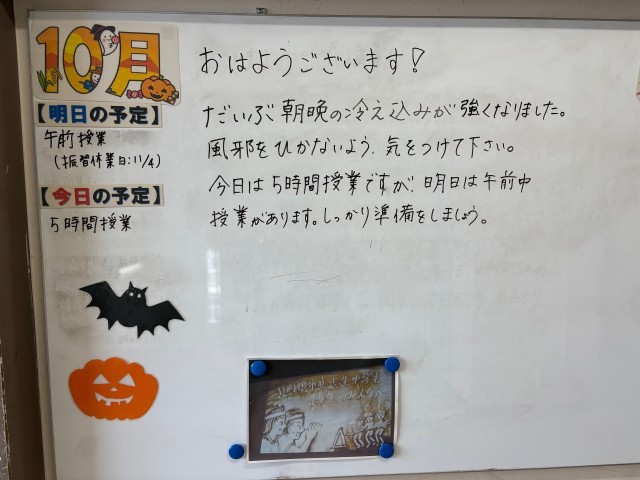 10月
【明日の予定】
午前授業
(振替休業日:11/4)
【今日の予定】
5時間授業
おはようございます!
だいぶ朝晩の冷え込みが強くなりました。
風邪をひかないよう、気をつけて下さい。
今日は5時間授業ですが、明日は午前中
授業があります。しっかり準備をしましょう。